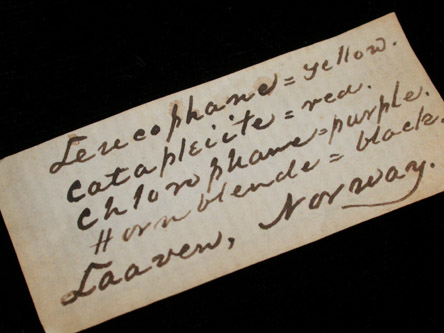 Leucophane = yellow.
catapleiite = red.
chlorophane = purple.
Hornblende = black.
Laaven, Norway.